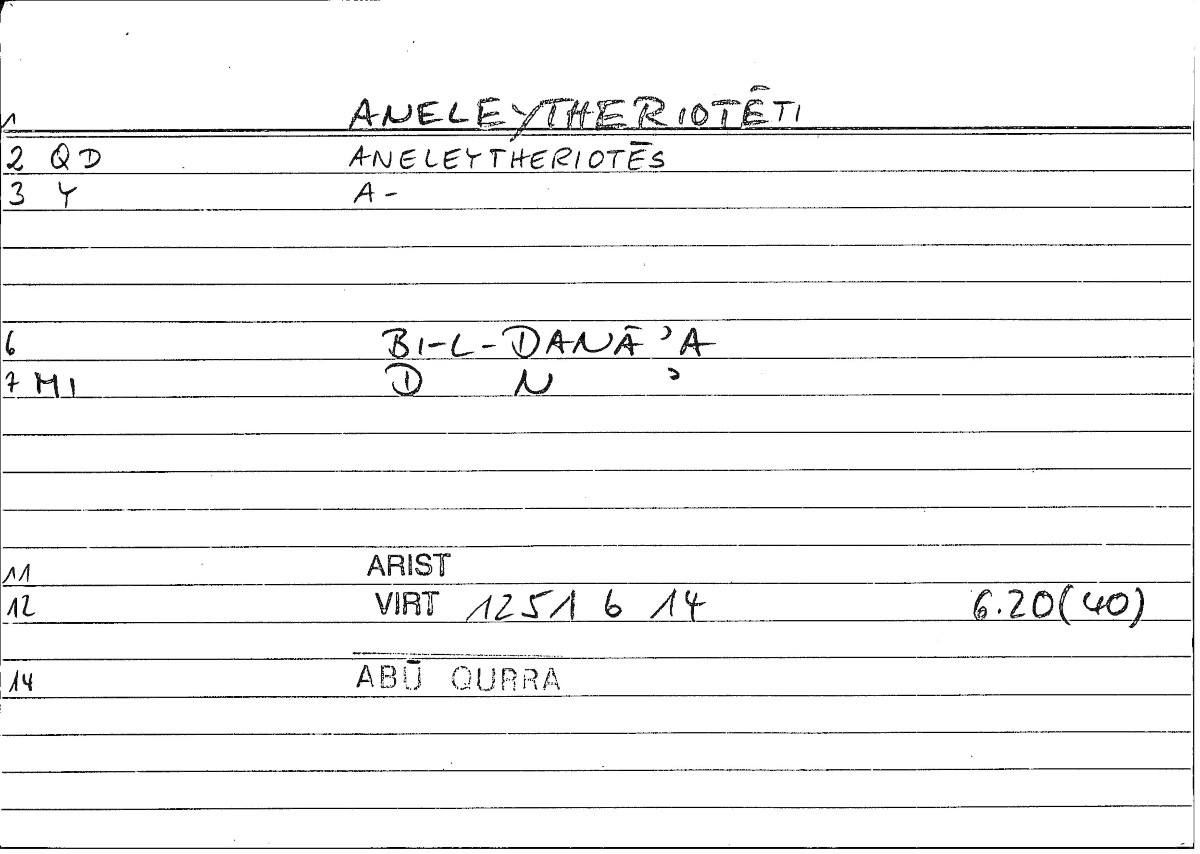 1 ANELEYTHERIOTÊTI
2 QD ANELEYTHERIOTĒS
3 Y A-
6 BI-L-DANĀ'A
7 MI D N '
11 ARIST
12 VIRT 1251 6 14 6.20(40)
14 ABŪ QURRA